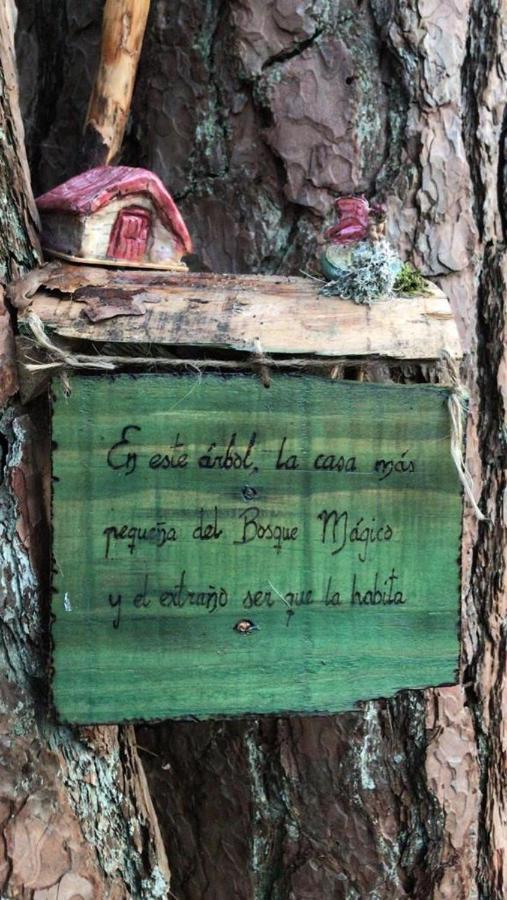 En este árbol, la casa más
pequeña del Bosque Mágico
y el extraño ser que la habita